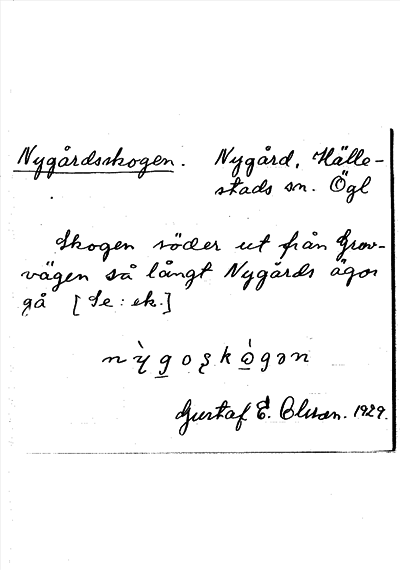 Nygårdsskogen. Nygård, Hälle-
stads sn. Ögl
Skogen söder ut från Grov-
vägen så långt Nygårds ägor
gå [Se: ek.]
nỳgoʂkògən
Gustaf E. Olsson. 1929.